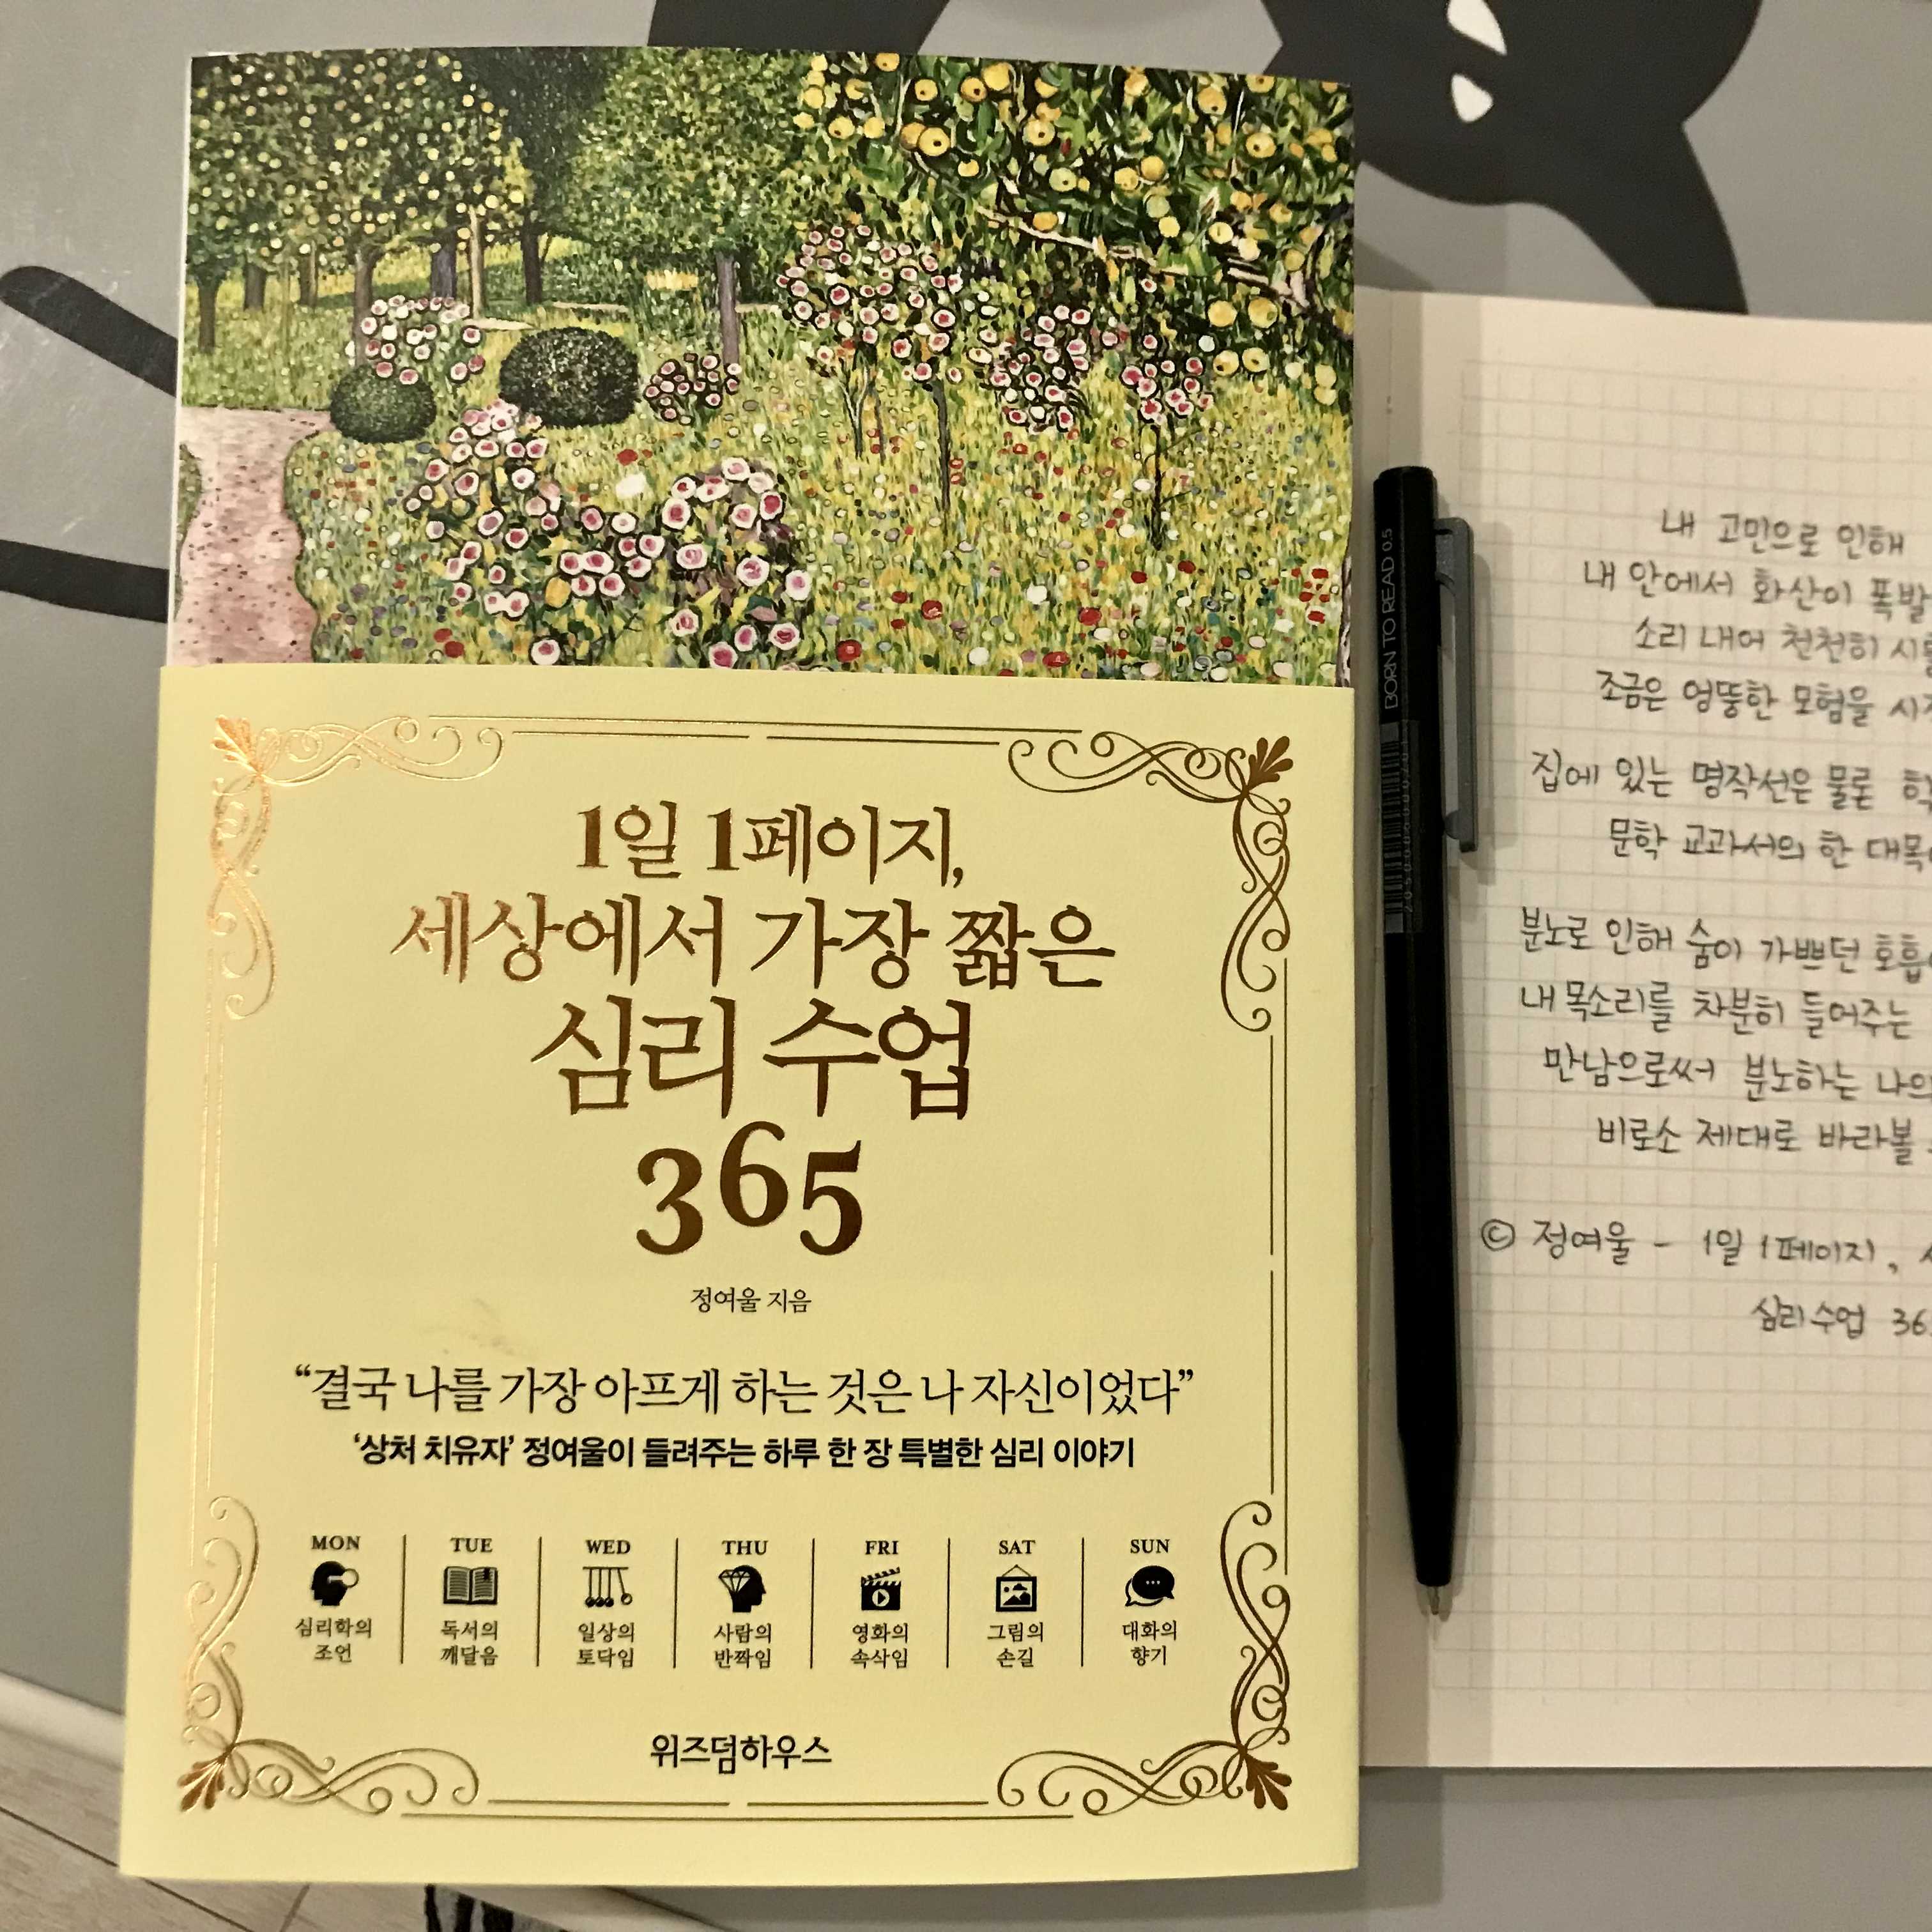 1일 1페이지,
세상에서 가장 짧은
심리 수업
365
정여울 지음
“결국 나를 가장 아프게 하는 것은 나 자신이었다”
‘상처 치유자’ 정여울이 들려주는 하루 한 장 특별한 심리 이야기
MON
심리학의
조언
TUE
독서의
깨달음
WED
일상의
토닥임
THU
사람의
반짝임
FRI
영화의
속삭임
SAT
그림의
손길
SUN
대화의
향기
위즈덤하우스
BORN TO READ 0.5
내 고민으로 인해
내 안에서 화산이 폭발
소리 내어 천천히
조금은 엉뚱한 모험을
집에 있는 명작선은 물론
문학 교과서의 한
분노로 인해 숨이 가쁘던
내 목소리를 차분히 들어주는
만남으로써 분노하는
비로소 제대로 바라볼
© 정여울 - 1일 1페이지,
심리 수업 36